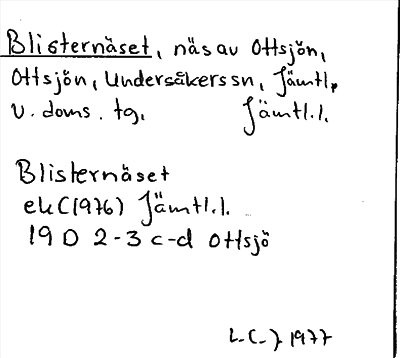 Blisternäset, näs av Ottsjön,
Ottsjön, Undersåkers sn, Jämtl.
v. doms. tg. Jämtl.l.
Blisternäset
ek (1976) Jämtl.l.
19 D 2-3 c-d Ottsjö
1977